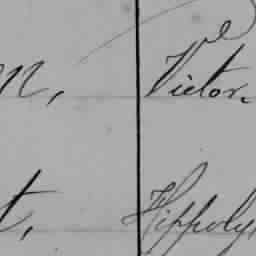 n, Victor
t, Hippoly